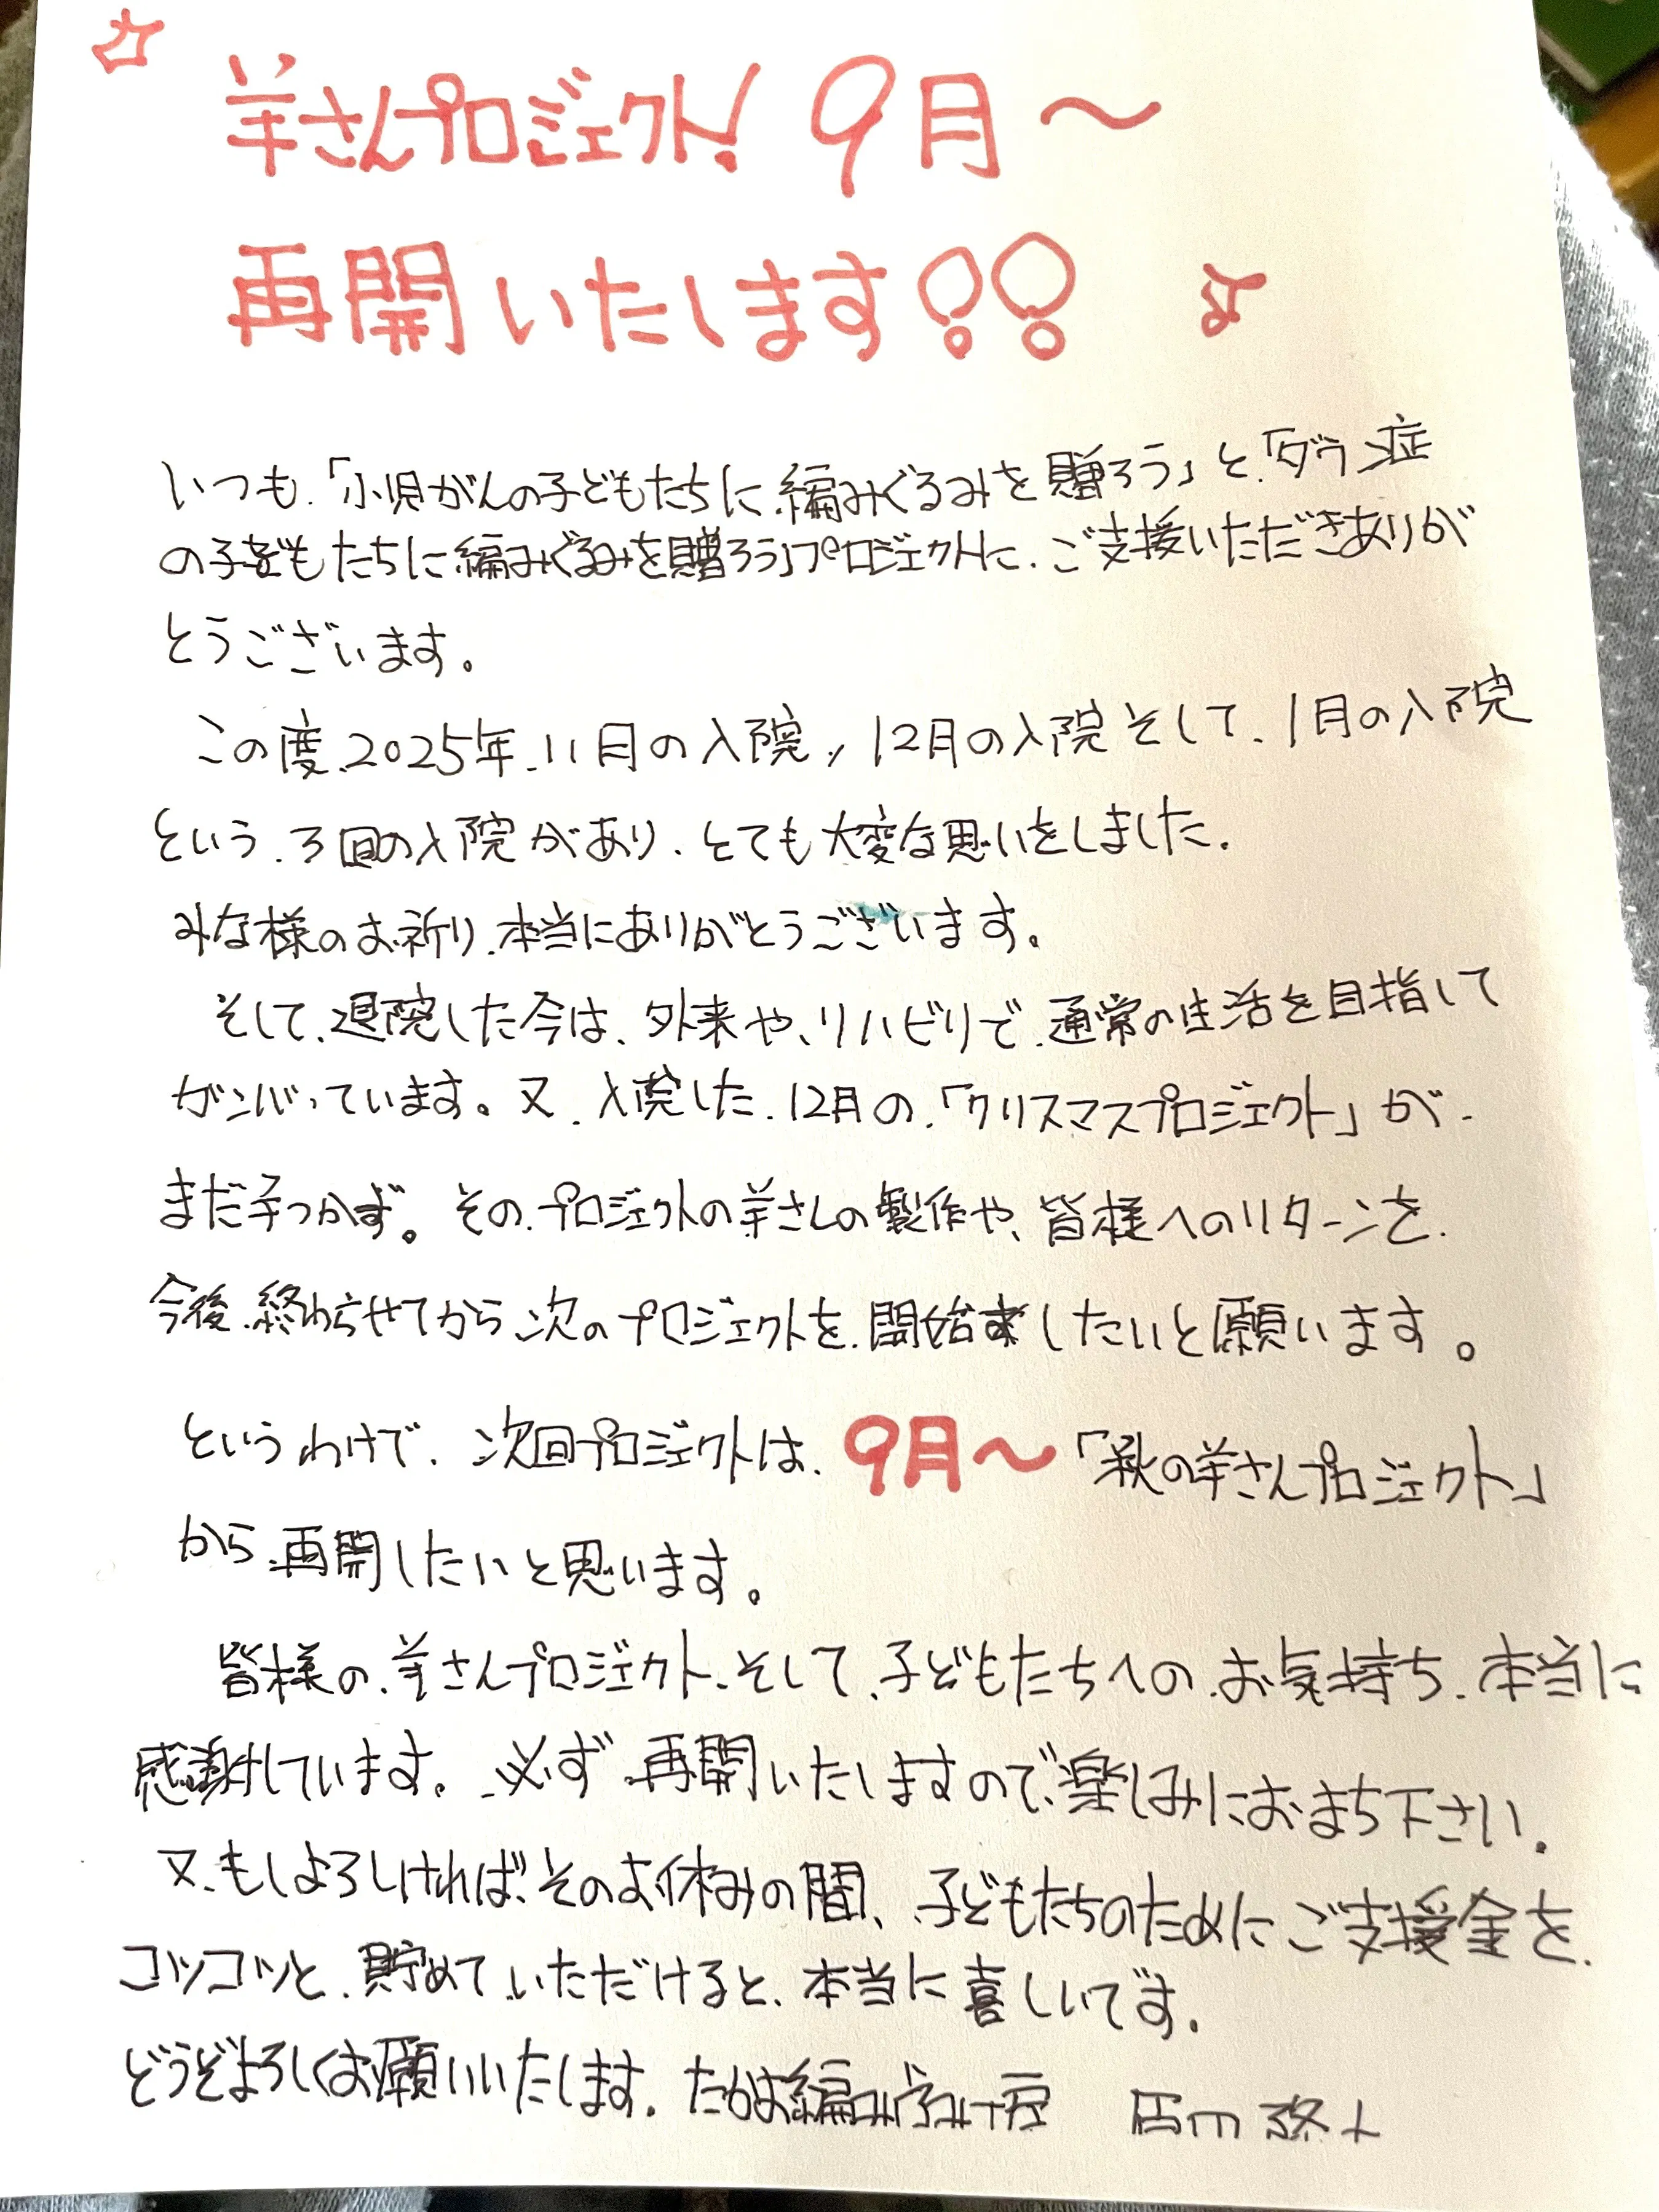 羊さんプロジェクト! 9月〜
再開いたします!!
いつも、「小児がんの子どもたちに編みぐるみを贈ろう」と、「ダウン症
の子どもたちに編みぐるみを贈ろう」プロジェクトに、ご支援いただきありが
とうございます。
この度、2025年、11月の入院、12月の入院そして、1月の入院
という、3回の入院があり、とても大変な思いをしました。
みな様のお祈り、本当にありがとうございます。
そして、退院した今は、外来や、リハビリで、通常の生活を目指して
ガンバっています。又、入院した、12月の、「クリスマスプロジェクト」が、
まだ手つかず。その、プロジェクトの羊さんの製作や、皆様へのリターンを、
今後、終わらせてから次のプロジェクトを、開始したいと願います。
というわけで、次回プロジェクトは、9月〜「秋の羊さんプロジェクト」
から、再開したいと思います。
皆様の、羊さんプロジェクト、そして、子どもたちへの、お気持ち、本当に
感謝しています。必ず、再開いたしますので、楽しみにおまち下さい。
又、もしよろしければ、そのお休みの間、子どもたちのためにご支援金を、
コツコツと、貯めていただけると、本当に喜しいです。
どうぞよろしくお願いいたします。